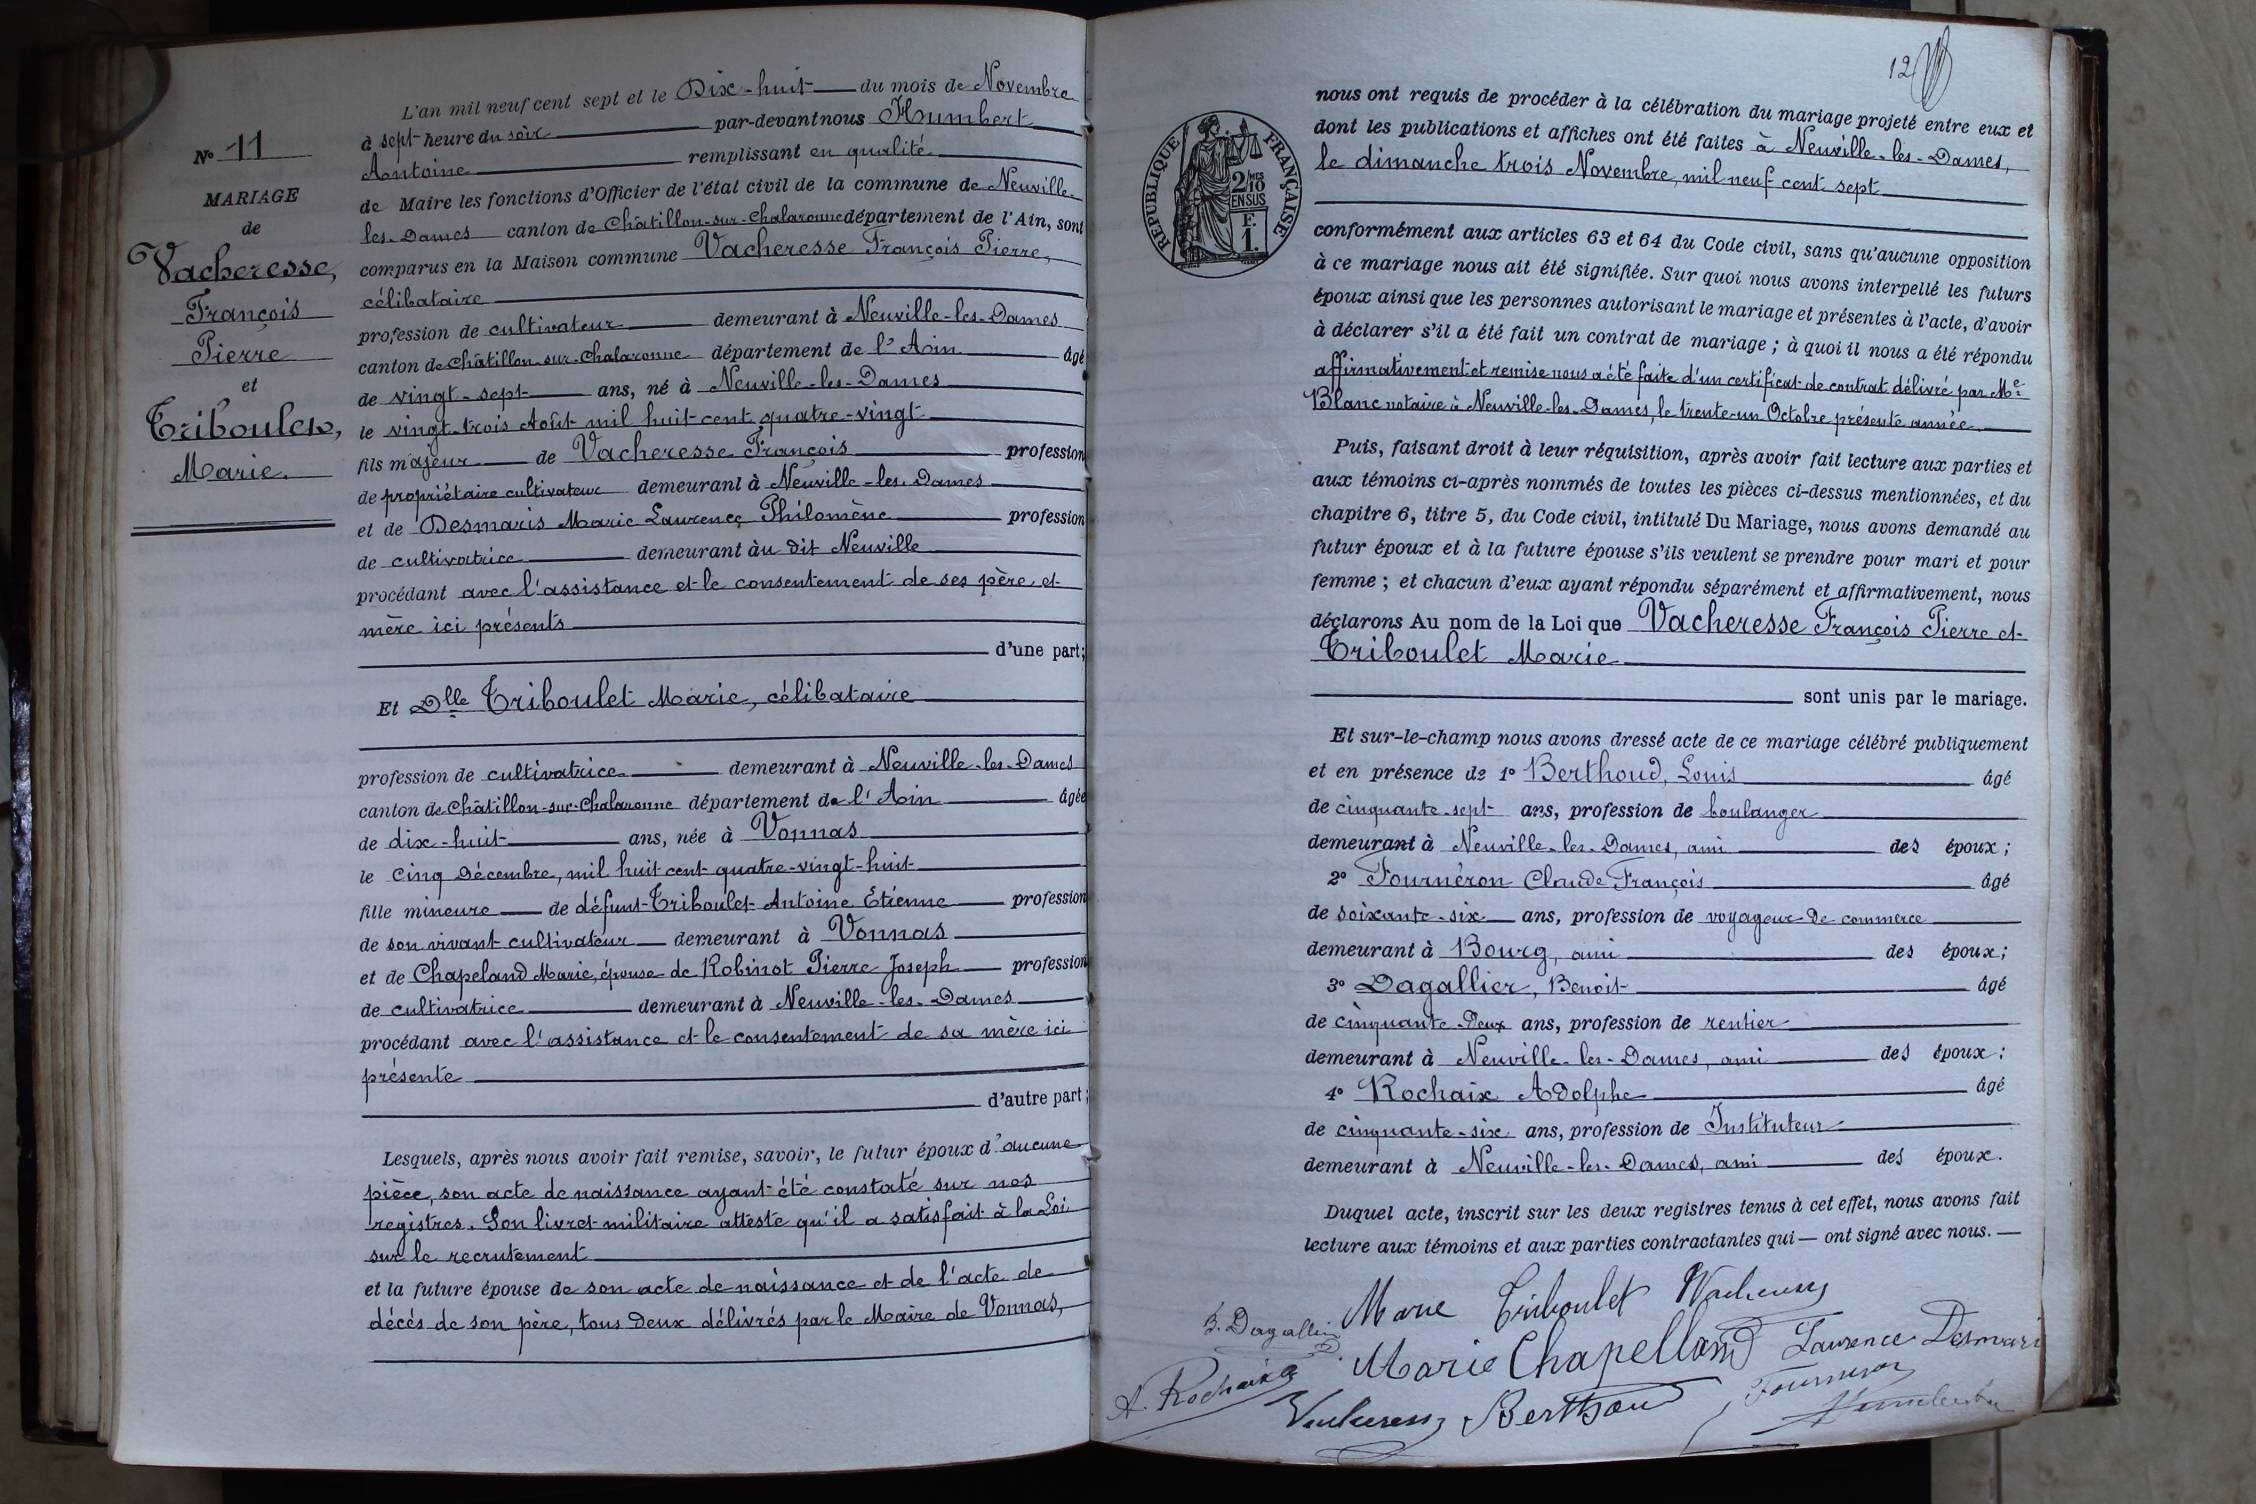 N° 11
MARIAGE
de
Vacheresse,
François
Pierre
et
Triboulet,
Marie.
L'an mil neuf cent sept et le Dix-huit du mois de Novembre
à sept heure du soir par-devant nous Humbert
Antoine remplissant en qualité
de Maire les fonctions d'Officier de l'état civil de la commune de Neuville-
les-Dames canton de Châtillon-sur-Chalaronne département de l'Ain, sont
comparus en la Maison commune Vacheresse François Pierre,
célibataire
profession de cultivateur demeurant à Neuville-les-Dames
canton de Châtillon-sur-Chalaronne département de l'Ain âgé
de vingt-sept ans, né à Neuville-les-Dames
le vingt-trois Août mil huit-cent quatre-vingt
fils majeur de Vacheresse François profession
de propriétaire cultivateur demeurant à Neuville-les-Dames
et de Desmaris Marie Laurence Philomène profession
de cultivatrice demeurant àu dit Neuville
procédant avec l'assistance et le consentement de ses père et
mère ici présents
d'une part;
Et Dlle Triboulet Marie, célibataire
profession de cultivatrice demeurant à Neuville-les-Dames
canton de Châtillon-sur-Chalaronne département de l'Ain âgée
de dix-huit ans, née à Vonnas
le cinq Décembre, mil huit cent quatre-vingt-huit
fille mineure de défunt Triboulet Antoine Etienne profession
de son vivant cultivateur demeurant à Vonnas
et de Chapeland Marie, épouse de Robinot Pierre Joseph profession
de cultivatrice demeurant à Neuville-les-Dames
procédant avec l'assistance et le consentement de sa mère ici
présente
d'autre part;
Lesquels, après nous avoir fait remise, savoir, le futur époux d'aucune
pièce, son acte de naissance ayant été constaté sur nos
registres. Son livret militaire atteste qu'il a satisfait à la Loi
sur le recrutement
et la future épouse de son acte de naissance et de l'acte de
décés de son père, tous deux délivrés par le Maire de Vonnas,
12
RÉPUBLIQUE FRANÇAISE
2/10 MES
EN SUS
F.
1.
nous ont requis de procéder à la célébration du mariage projeté entre eux et
dont les publications et affiches ont été faites à Neuville-les-Dames,
le dimanche trois Novembre, mil neuf cent sept
conformément aux articles 63 et 64 du Code civil, sans qu'aucune opposition
à ce mariage nous ait été signifiée. Sur quoi nous avons interpellé les futurs
époux ainsi que les personnes autorisant le mariage et présentes à l'acte, d'avoir
à déclarer s'il a été fait un contrat de mariage ; à quoi il nous a été répondu
affirmativement et remise nous a été faite d'un certificat de contrat délivré par Me
Blanc notaire à Neuville-les-Dames, le trente-un Octobre présente année.
Puis, faisant droit à leur réquisition, après avoir fait lecture aux parties et
aux témoins ci-après nommés de toutes les pièces ci-dessus mentionnées, et du
chapitre 6, titre 5, du Code civil, intitulé Du Mariage, nous avons demandé au
futur époux et à la future épouse s'ils veulent se prendre pour mari et pour
femme ; et chacun d'eux ayant répondu séparément et affirmativement, nous
déclarons Au nom de la Loi que Vacheresse François Pierre et
Triboulet Marie
sont unis par le mariage.
Et sur-le-champ nous avons dressé acte de ce mariage célébré publiquement
et en présence de 1° Berthoud, Louis âgé
de cinquante-sept ans, profession de boulanger
demeurant à Neuville-les-Dames, ami des époux ;
2° Fournéron Claude François âgé
de soixante-six ans, profession de voyageur de commerce
demeurant à Bourg, ami des époux ;
3° Dagallier, Benoit âgé
de cinquante-deux ans, profession de rentier
demeurant à Neuville-les-Dames, ami des époux ;
4° Rochaix Adolphe âgé
de cinquante-six ans, profession de Instituteur
demeurant à Neuville-les-Dames, ami des époux.
Duquel acte, inscrit sur les deux registres tenus à cet effet, nous avons fait
lecture aux témoins et aux parties contractantes qui — ont signé avec nous. —
Marie Triboulet
B. Dagallier
Marie Chapelland Laurence Desmari
A. Rochaix
Berthoud Fourneron